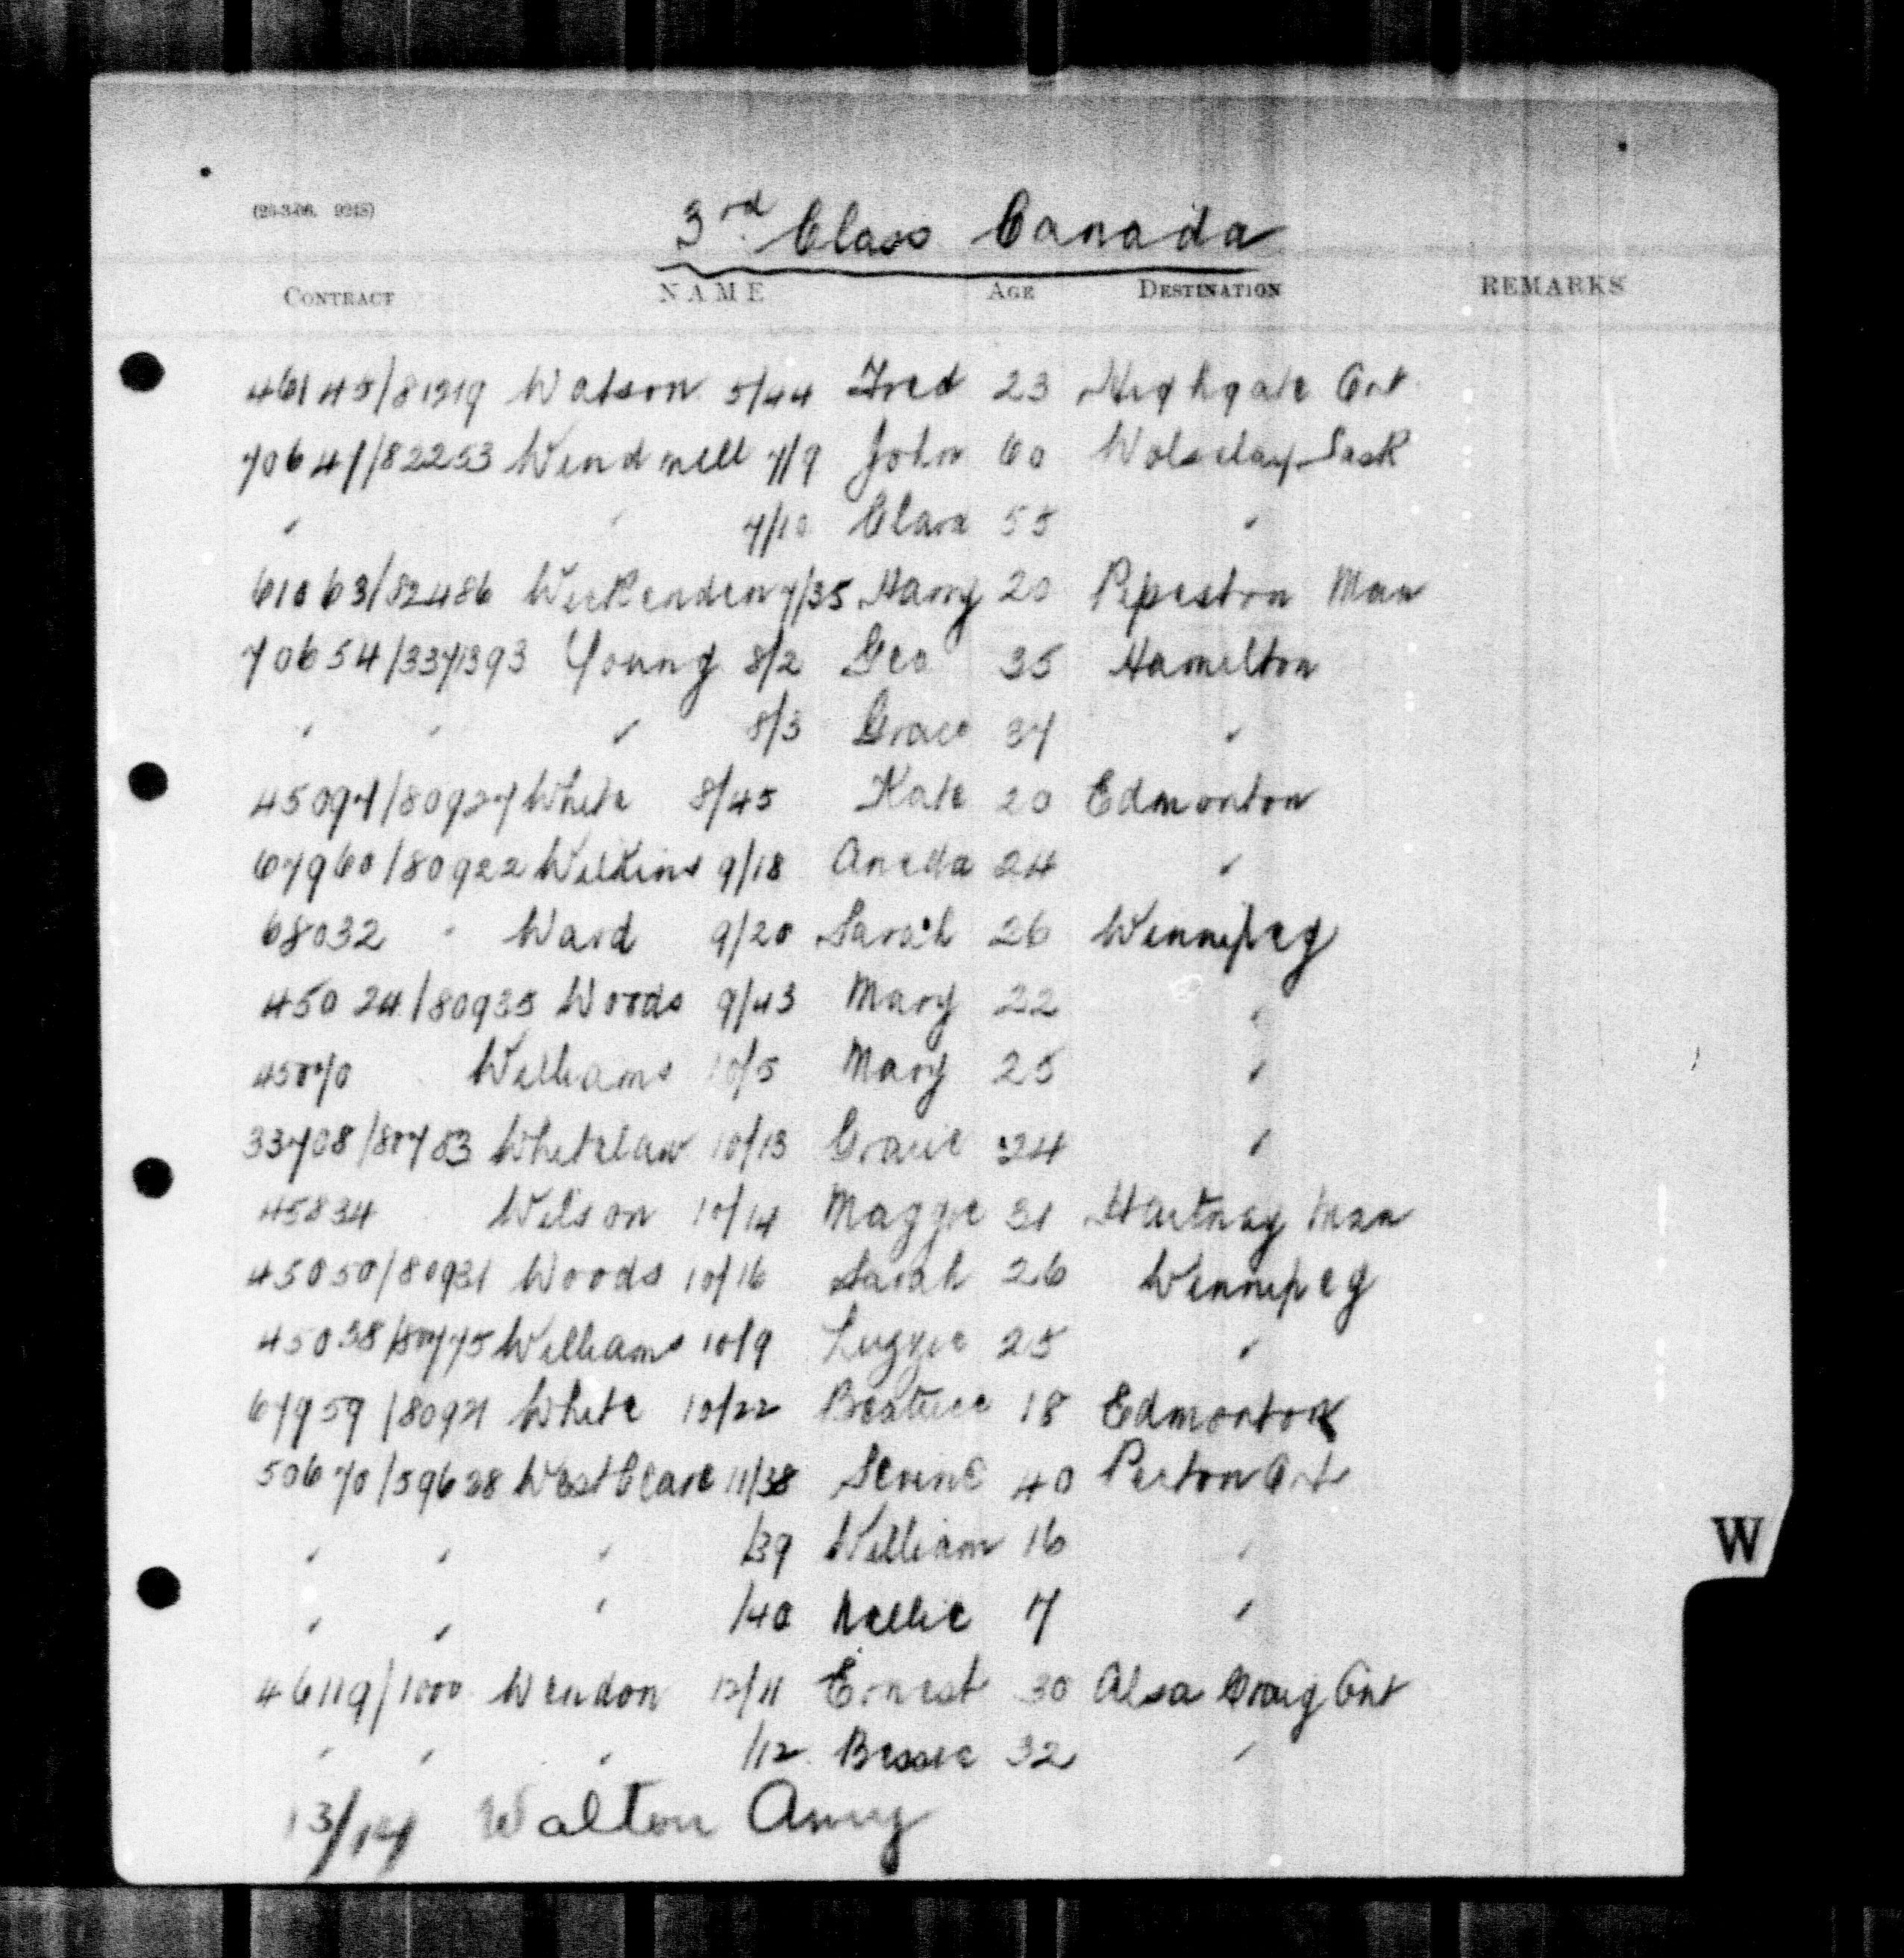 (26-3-06. 9248)
3rd. Class Canada
CONTRACT NAME AGE DESTINATION REMARKS
46145/81319 Watson 5/44 Fred 23 Highgate Ont.
70647/82253 Wendmell 7/9 John 60 Wolselay Sask
" " 7/10 Clara 55 "
61063/82486 Weekenden 7/35 Harry 20 Pipeston Man
70654/337393 Young 8/2 Geo 35 Hamelton
" " " 8/3 Grace 37 "
45097/80927 White 8/45 Kate 20 Edmonton
67960/80922 Wilkins 9/18 Aneda 24 "
68032 " Ward 9/20 Sarah 26 Winnipeg
45024/80935 Woods 9/43 Mary 22 "
45070 Williams 10/5 Mary 25 "
33708/80783 Whitelaw 10/13 Gracie 24 "
45834 Wilson 10/14 Maggie 31 Hartney Man
45050/80931 Woods 10/16 Sarah 26 Winnipeg
45038/80775 Williams 10/9 25 "
67959/80921 White 10/22 Beatrice 18 Edmonton
50670/59638 West Clare 11/38 40 Ont
" " " /39 William 16 "
" " " /40 Nellie 7 "
46119/1000 Wendon 12/11 Ernest 30 Alsa Craig Ont
" " " /12 Bessie 32 "
13/14 Walton Amy
W